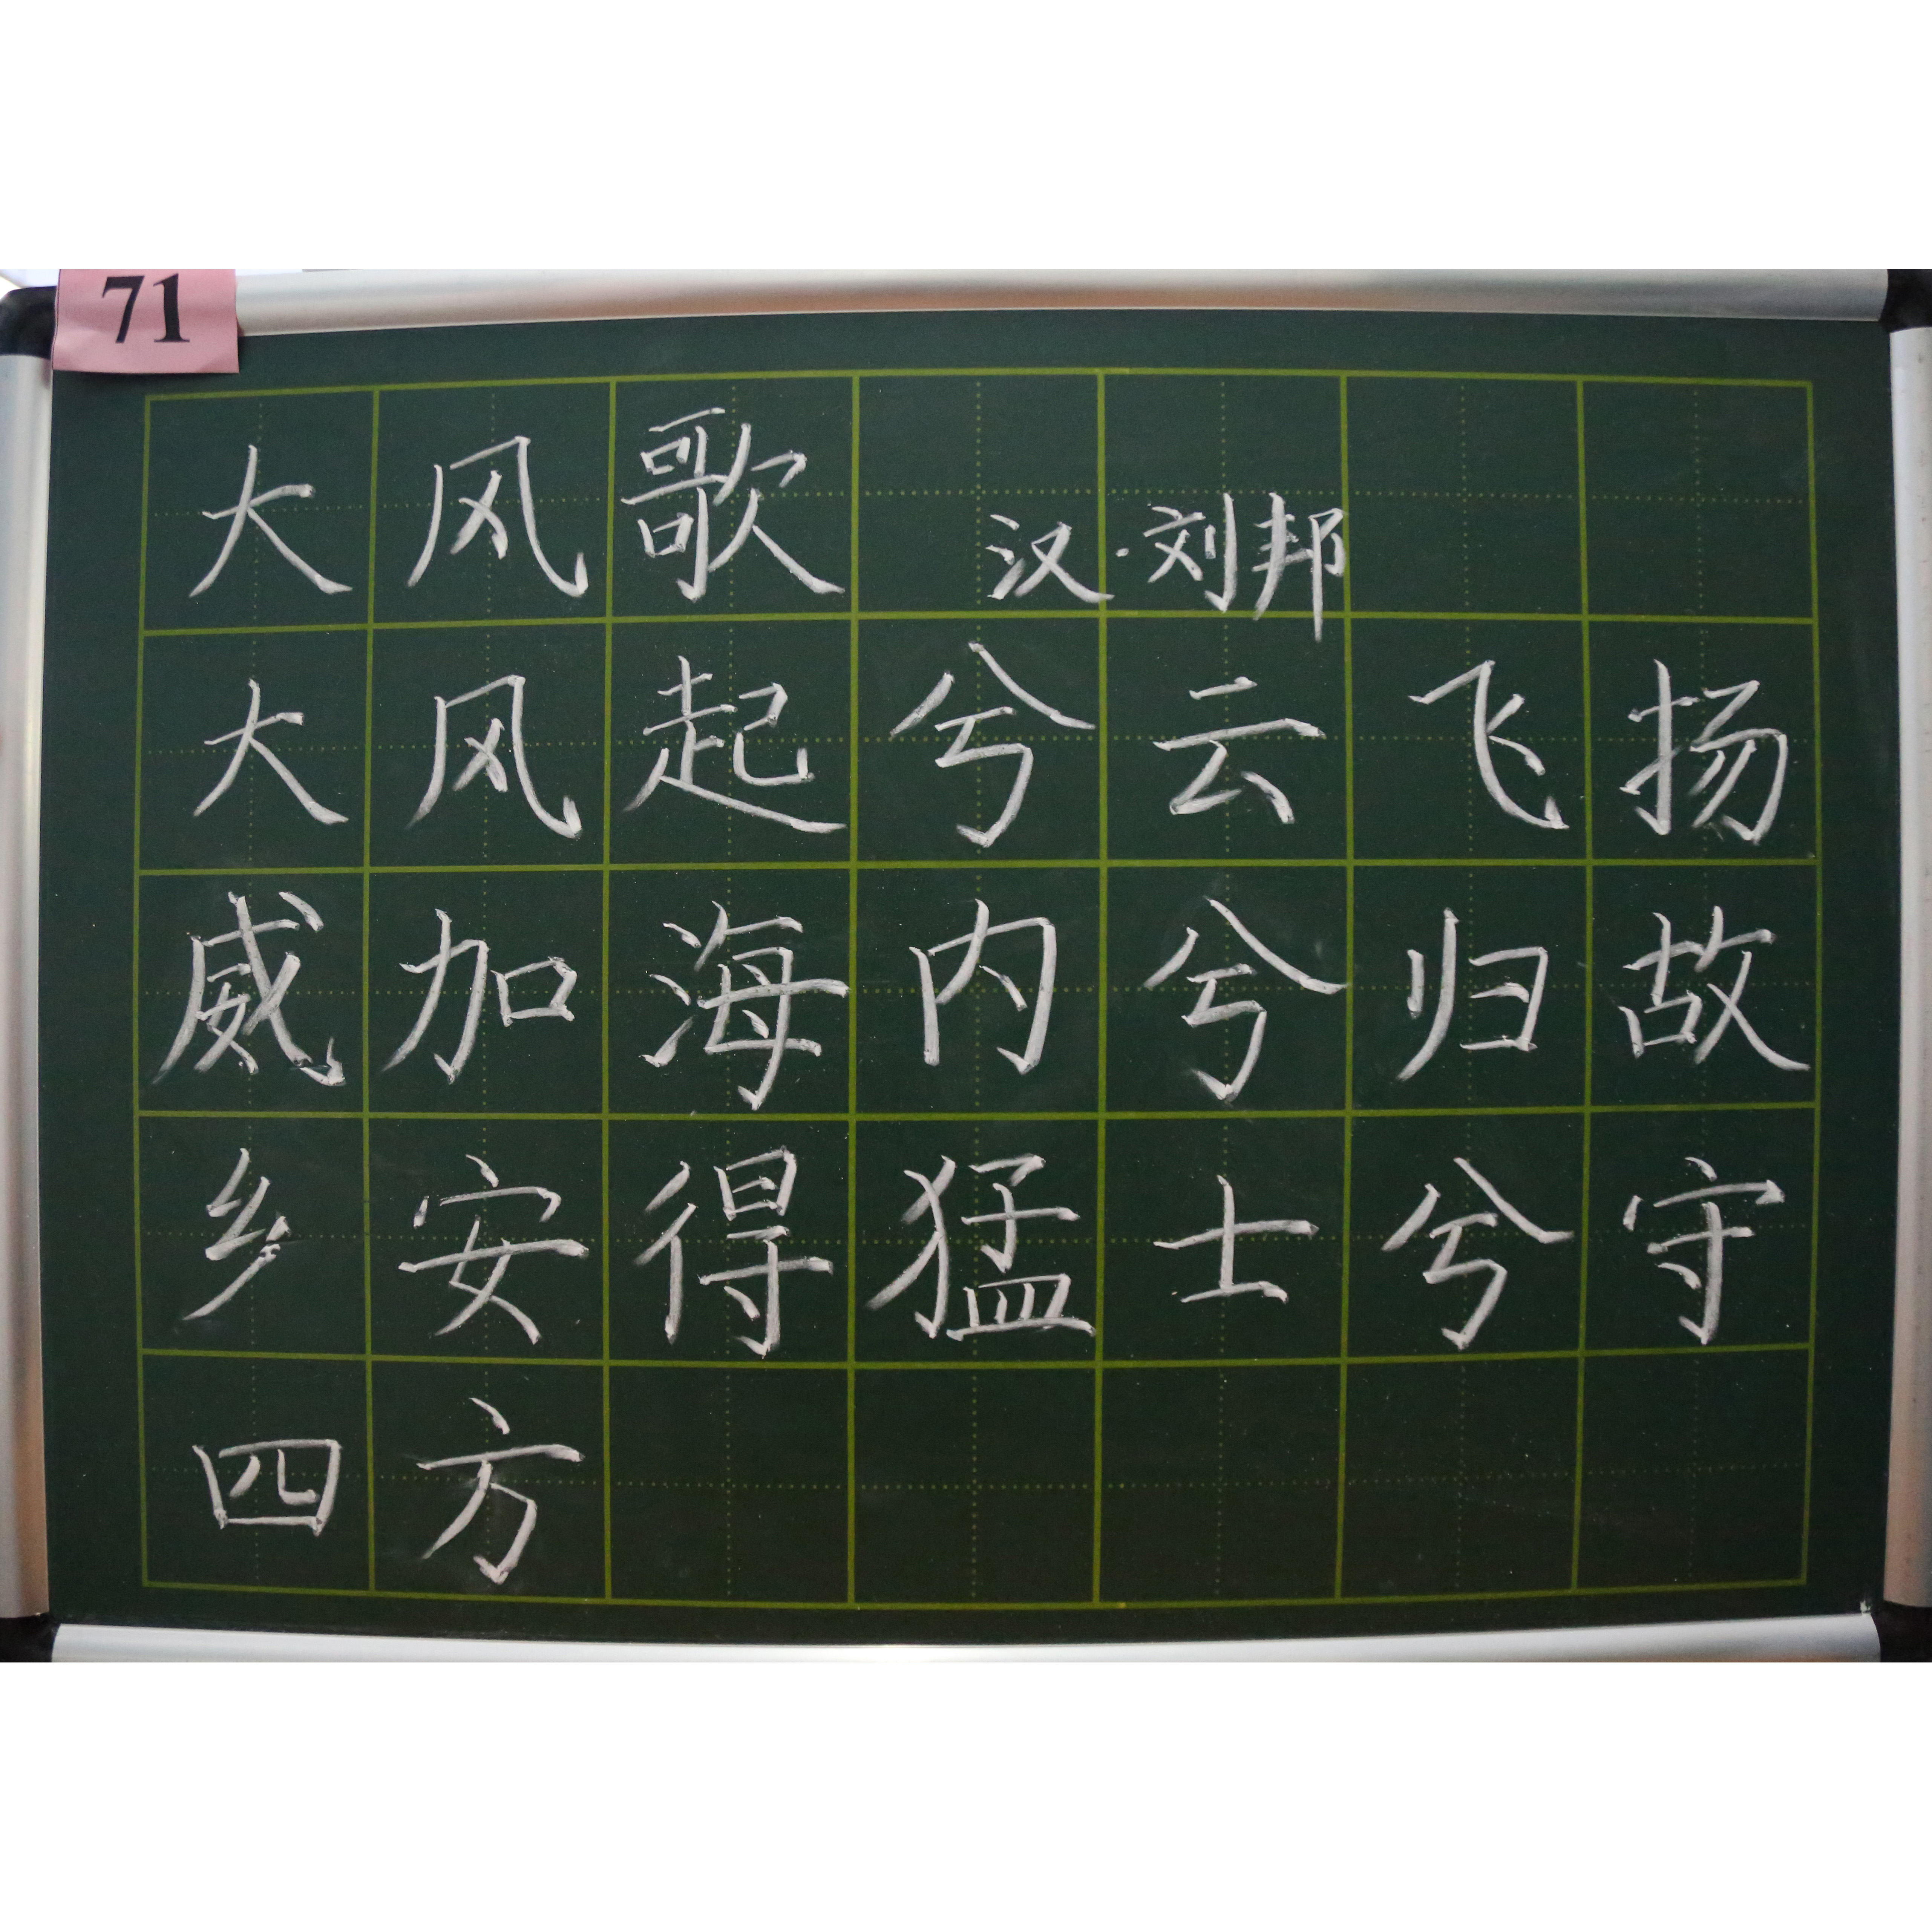 71
大风歌 汉·刘邦
大风起兮云飞扬
威加海内兮归故
乡安得猛士兮守
四方